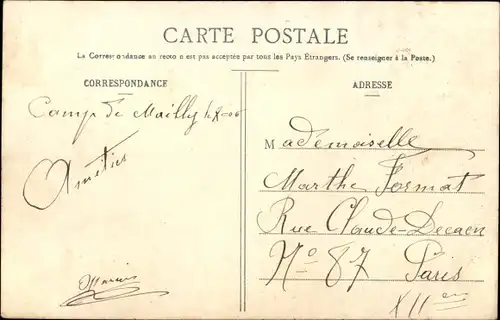 CARTE POSTALE
La Correspondance au recto n'est pas acceptée par tous les Pays Étrangers. (Se renseigner à la Poste.)
CORRESPONDANCE
Camp de Mailly le
Amitiés
ADRESSE
Mademoiselle
Marthe Format
Rue Claude-Decaen
No 87 Paris
XIIem